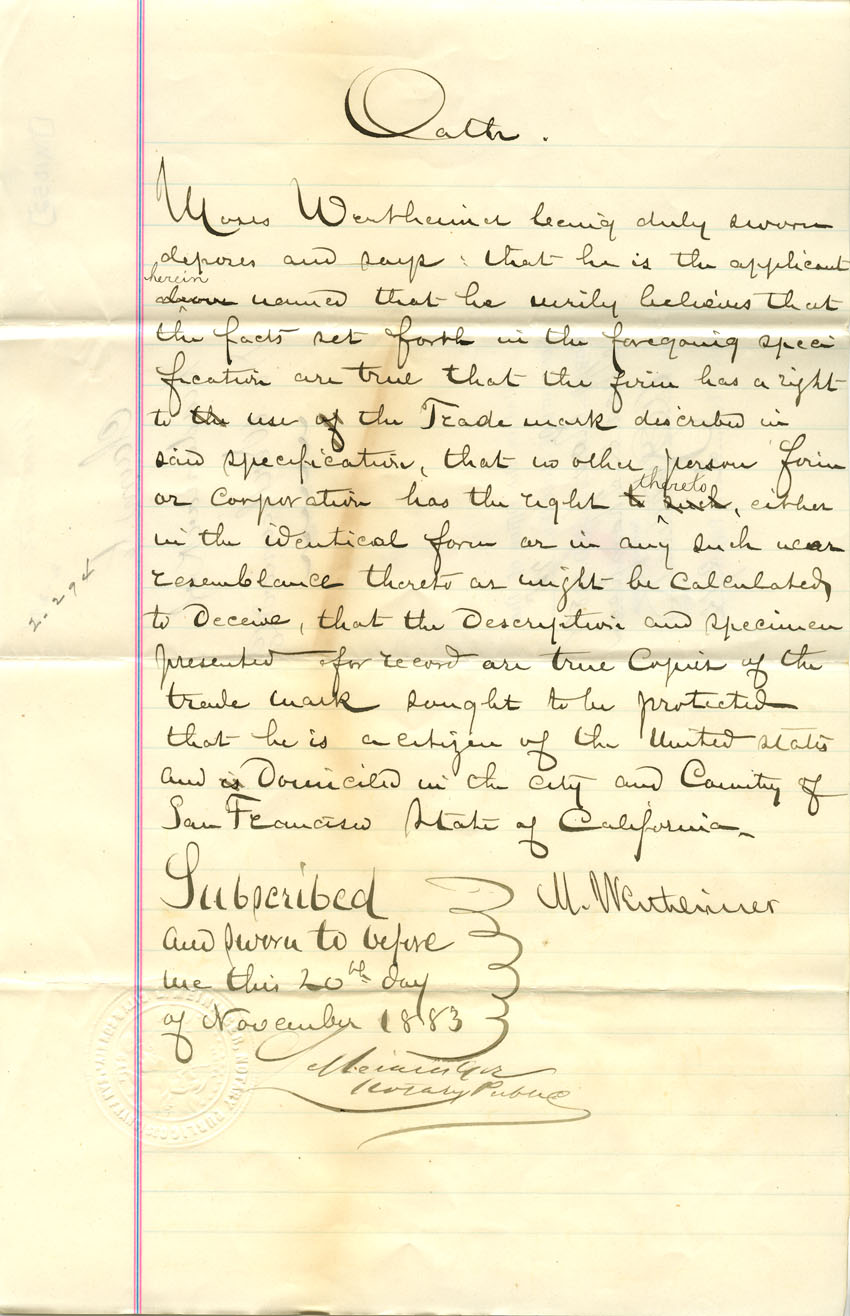 Oath.
Moses Wertheimer being duly sworn
deposes and says: that he is the applicant
herein
above named that he verily believes that
the facts set forth in the foregoing speci
fication are true that the firm has a right
to the use of the Trade mark described in
said specification, that no other person firm
thereto
or corporation has the right to such, either
in the identical form or in any such near
resemblance thereto as might be calculated,
to Deceive, that the Description and specimen
presented for record are true Copies of the
trade mark sought to be protected
that he is a citizen of the United States
and is Domiciled in the city and County of
San Francisco State of California
Subscribed
M. Wertheimer
and sworn to before
me this 20th day
of November 1883
Notary Public
2-294
NOTARY PUBLIC